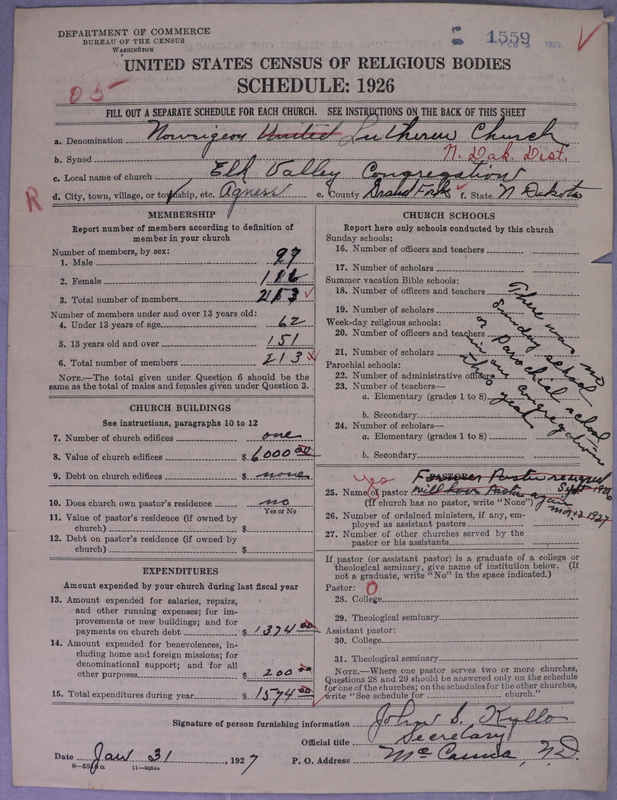 DEPARTMENT OF COMMERCE
BUREAU OF THE CENSUS
WASHINGTON
1559
UNITED STATES CENSUS OF RELIGIOUS BODIES
SCHEDULE: 1926
05-
FILL OUT A SEPARATE SCHEDULE FOR EACH CHURCH. SEE INSTRUCTIONS ON THE BACK OF THIS SHEET
a. Denomination Norwigeon United Lutheren Church
b. Synod N. Dak. Dist.
c. Local name of church Elk Valley Congregation
d. City, town, village, or township, etc. Agness e. County Grand Forks f. State N Dakota
R
MEMBERSHIP
Report number of members according to definition of member in your church
Number of members, by sex:
1. Male 97
2. Female 116
3. Total number of members 213
Number of members under and over 13 years old:
4. Under 13 years of age 62
5. 13 years old and over 151
6. Total number of members 213
NOTE.—The total given under Question 6 should be the same as the total of males and females given under Question 3.
CHURCH BUILDINGS
See instructions, paragraphs 10 to 12
7. Number of church edifices one
8. Value of church edifices $ 6000 00
9. Debt on church edifices $ none
10. Does church own pastor's residence? no
Yes or No
11. Value of pastor's residence (if owned by church) $
12. Debt on pastor's residence (if owned by church) $
EXPENDITURES
Amount expended by your church during last fiscal year
13. Amount expended for salaries, repairs, and other running expenses; for improvements or new buildings; and for payments on church debt $ 1374 00
14. Amount expended for benevolences, including home and foreign missions; for denominational support; and for all other purposes $ 200 00
15. Total expenditures during year $ 1574 00
CHURCH SCHOOLS
Report here only schools conducted by this church
Sunday schools:
16. Number of officers and teachers
17. Number of scholars
Summer vacation Bible schools:
18. Number of officers and teachers
19. Number of scholars
Week-day religious schools:
20. Number of officers and teachers
21. Number of scholars
Parochial schools:
22. Number of administrative officers
23. Number of teachers—
a. Elementary (grades 1 to 8)
b. Secondary
24. Number of scholars—
a. Elementary (grades 1 to 8)
b. Secondary
There was no
Sunday school
or Parochial school
in our congregation
this year
PASTORS
yes
Former Pastor resigned
Sept 1926
25. Name of pastor will have Pastor again Mar 12 1927
(If church has no pastor, write "None")
26. Number of ordained ministers, if any, employed as assistant pastors
27. Number of other churches served by the pastor or his assistants
If pastor (or assistant pastor) is a graduate of a college or theological seminary, give name of institution below. (If not a graduate, write "No" in the space indicated.)
Pastor: 0
28. College
29. Theological seminary
Assistant pastor:
30. College
31. Theological seminary
NOTE.—Where one pastor serves two or more churches, Questions 28 and 29 should be answered only on the schedule for one of the churches; on the schedules for the other churches, write "See schedule for church."
Signature of person furnishing information John S. Kyllo
Official title Secretary
Date Jan 31, 1927 P. O. Address McCanna, N.D.
8-5519a 11-9864a